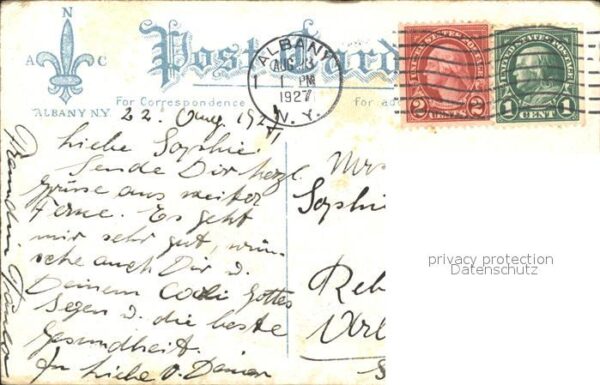 N
A C
ALBANY N.Y.
Post Card
For Correspondence
For ad
ALBANY
AUG 3
1 PM
1927
N.Y.
UNITED STATES POSTAGE
2 CENTS 2
UNITED STATES POSTAGE
1 CENT 1
22. Aug. 192
Liebe Sophie.
Sende Dir herzl.
Grüsse aus weiter
Ferne. Es geht
mir sehr gut, wün-
sche auch Dir u.
Deinem Gottes
Segen u. die beste
Gesundheit.
In Liebe Deiner
Mrs
Sophi
Reb
privacy protection
Datenschutz